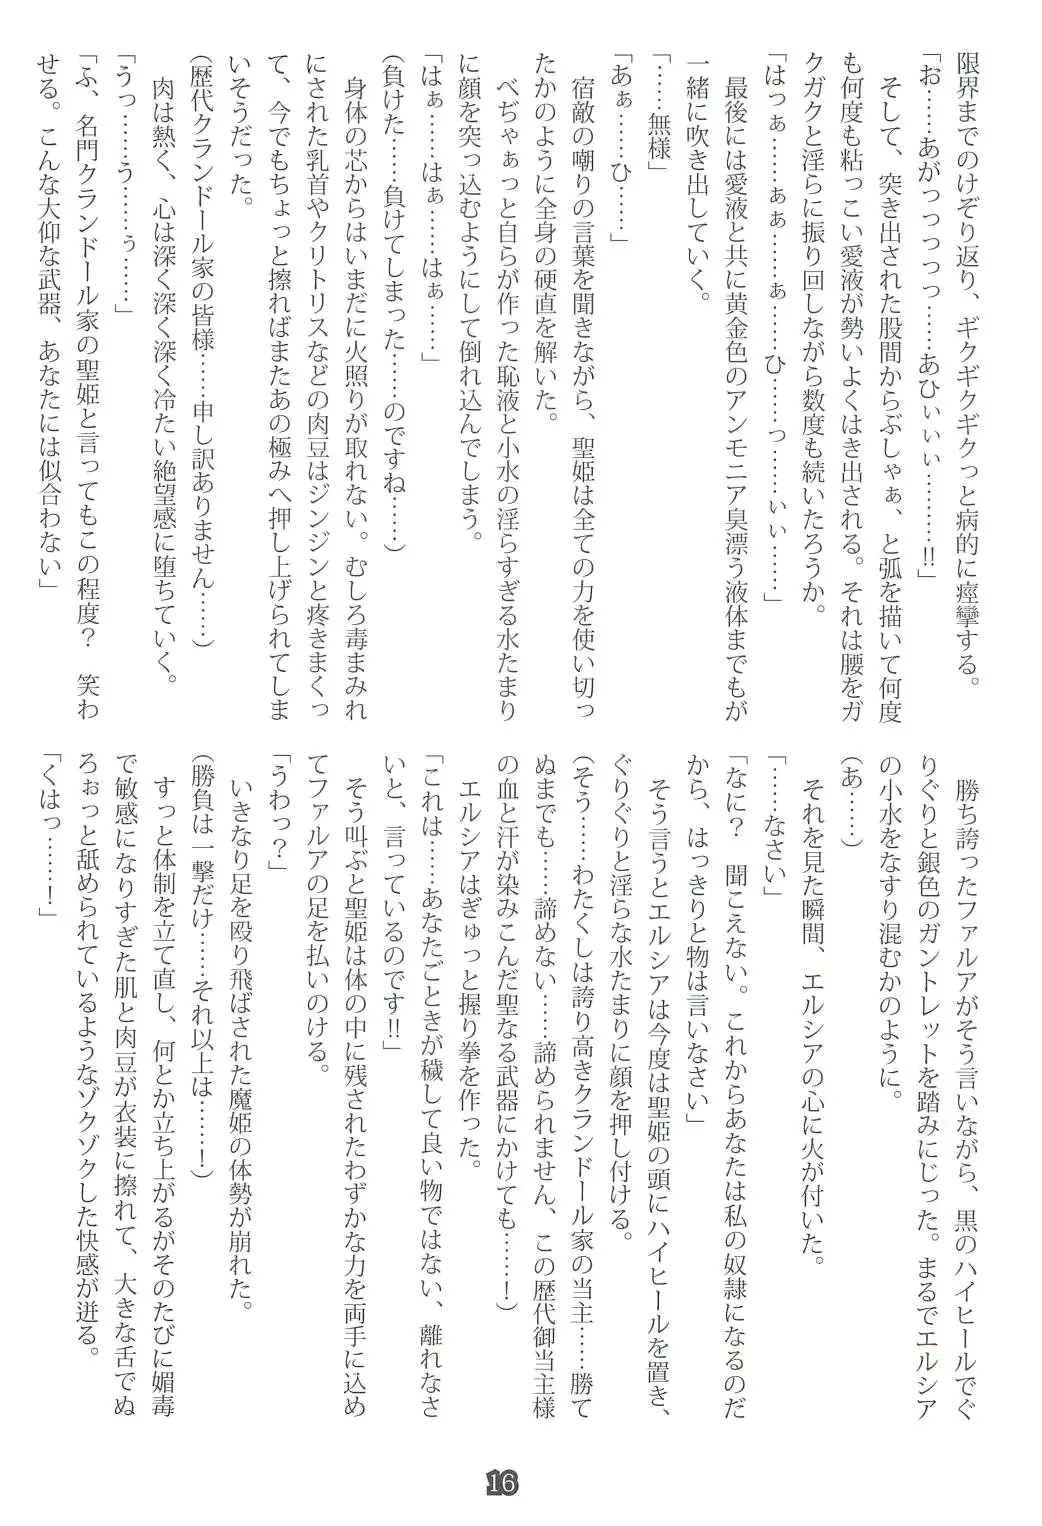 限界までのけぞり返り、ギクギクギクっと病的に痙攣する。
「お……あがっっっっっ……あひぃぃぃ………!!」
そして、突き出された股間からぶしゃぁ、と弧を描いて何度
も何度も粘っこい愛液が勢いよくはき出される。それは腰をガ
クガクと淫らに振り回しながら数度も続いたろうか。
「はっぁ……ぁぁ……ぁ……ひ……っ……ぃぃ……」
最後には愛液と共に黄金色のアンモニア臭漂う液体までもが
一緒に吹き出していく。
「……無様」
「あぁ……ひ……」
宿敵の嘲りの言葉を聞きながら、聖姫は全ての力を使い切っ
たかのように全身の硬直を解いた。
べぢゃぁっと自らが作った恥液と小水の淫らすぎる水たまり
に顔を突っ込むようにして倒れ込んでしまう。
「はぁ……はぁ……はぁ……」
(負けた……負けてしまった……のですね……)
身体の芯からはいまだに火照りが取れない。むしろ毒まみれ
にされた乳首やクリトリスなどの肉豆はジンジンと疼きまくっ
て、今でもちょっと擦ればまたあの極みへ押し上げられてしま
いそうだった。
(歴代クランドール家の皆様……申し訳ありません……)
肉は熱く、心は深く深く深く冷たい絶望感に堕ちていく。
「うっ……う……ぅ……」
「ふ、名門クランドール家の聖姫と言ってもこの程度?　笑わ
せる。こんな大仰な武器、あなたには似合わない」
勝ち誇ったファルアがそう言いながら、黒のハイヒールでぐ
りぐりと銀色のガントレットを踏みにじった。まるでエルシア
の小水をなすり混むかのように。
(あ……)
それを見た瞬間、エルシアの心に火が付いた。
「……なさい」
「なに?　聞こえない。これからあなたは私の奴隷になるのだ
から、はっきりと物は言いなさい」
そう言うとエルシアは今度は聖姫の頭にハイヒールを置き、
ぐりぐりと淫らな水たまりに顔を押し付ける。
(そう……わたくしは誇り高きクランドール家の当主……勝て
ぬまでも……諦めない……諦められません、この歴代御当主様
の血と汗が染みこんだ聖なる武器にかけても……!)
エルシアはぎゅっと握り拳を作った。
「これは……あなたごときが穢して良い物ではない、離れなさ
いと、言っているのです!!」
そう叫ぶと聖姫は体の中に残されたわずかな力を両手に込め
てファルアの足を払いのける。
「うわっ?」
いきなり足を殴り飛ばされた魔姫の体勢が崩れた。
(勝負は一撃だけ……それ以上は……!)
すっと体制を立て直し、何とか立ち上がるがそのたびに媚毒
で敏感になりすぎた肌と肉豆が衣装に擦れて、大きな舌でぬ
ろぉっと舐められているようなゾクゾクした快感が迸る。
「くはっ……!」
16